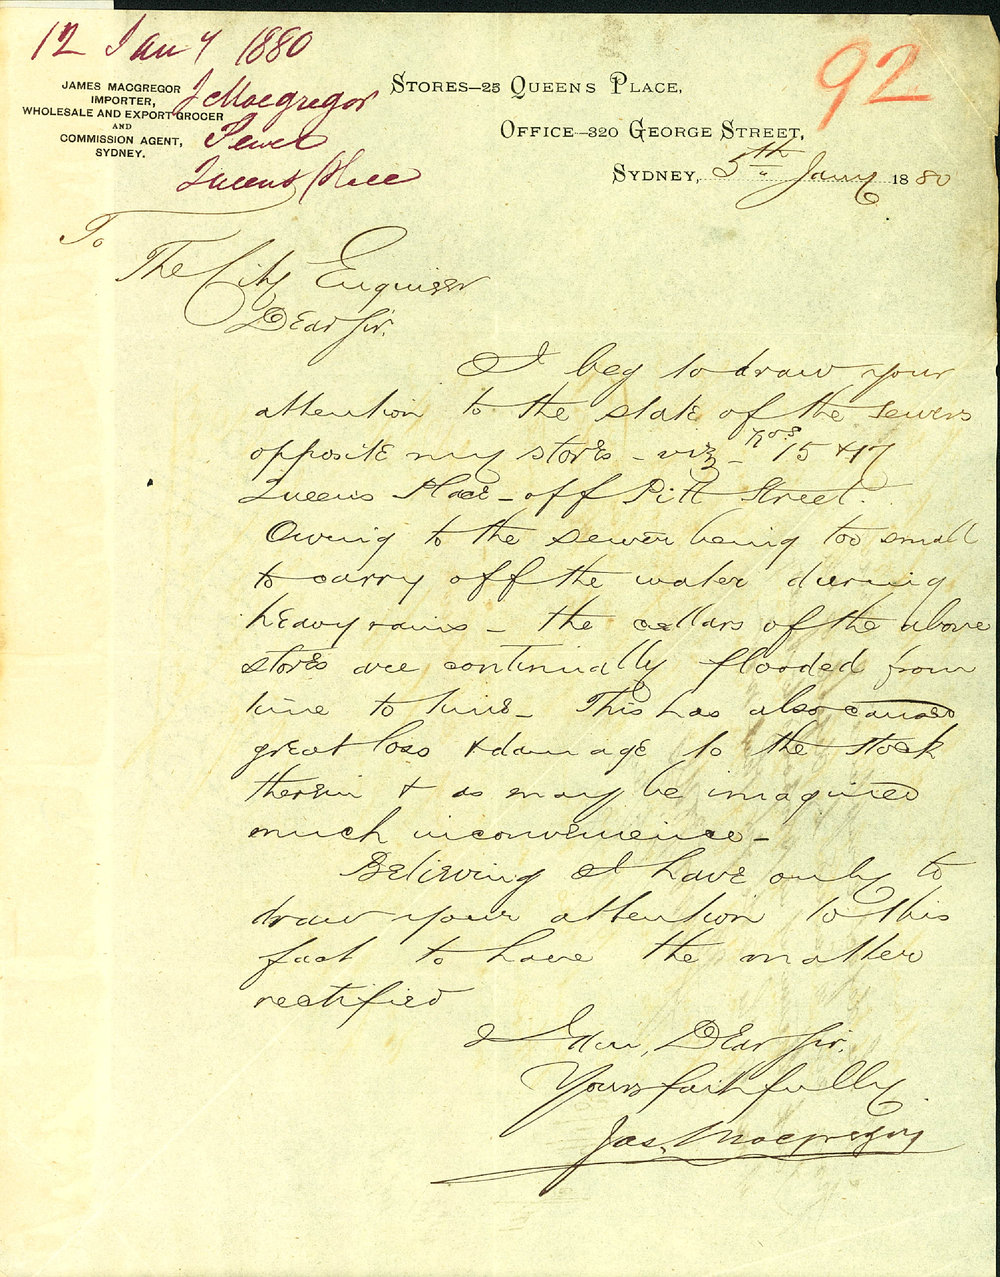 12 Jany 1880
92
JAMES MACGREGOR
IMPORTER,
WHOLESALE AND EXPORT GROCER
AND
COMMISSION AGENT,
SYDNEY.
J. Macgregor
Sewer
Queens Place
STORES—25 QUEENS PLACE,
OFFICE—320 GEORGE STREET,
SYDNEY, 5th Jany 1880
To
The City Enquieer
Dear Sir.
I beg to draw your
attention to the state of the sewers
opposite my stores - viz - Nos 15 & 17
Queens Place - off Pitt Street.
Owing to the sewer being too small
to carry off the water during
heavy rains - the cellars of the above
stores are continually flooded from
time to time - This has also caused
great loss & damage to the stock
therein & as may be imagined
much inconvenience -
Believing I have only to
draw your attention to this
fact to have the matter
rectified
I am, Dear Sir.
Yours faithfully
Jas. Macgregor